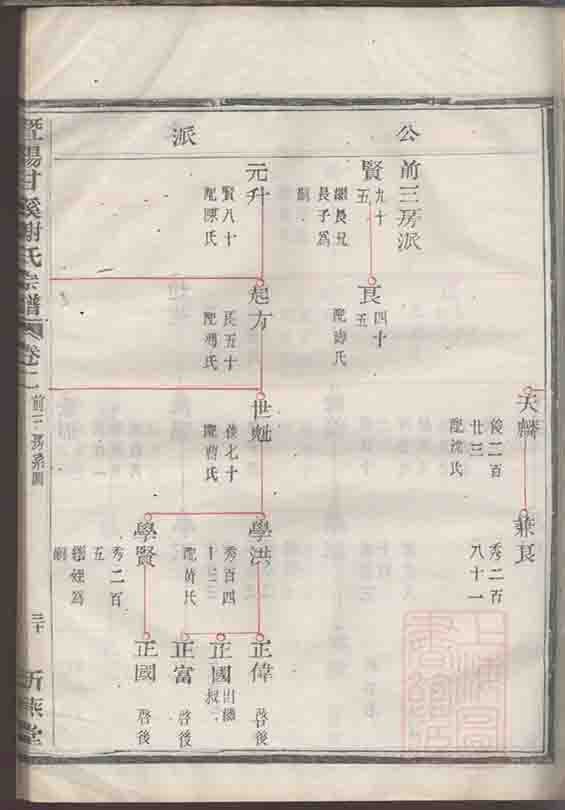 公派
前三房派
賢九十五
繼長兄長子為嗣
良四十五
配壽氏
元升
賢八十
配陳氏
起方
良五十
配馮氏
世魁
俊七十
配曹氏
學洪
秀百四十三
配黃氏
學賢
秀二百五
繼姪為嗣
正偉
啓後
正國
出繼叔
正富
啓後
正國
啓後
天麟
俊二百廿三
配沈氏
兼良
秀二百八十一
暨陽甘溪謝氏宗譜
卷二
前三房系圖
三十